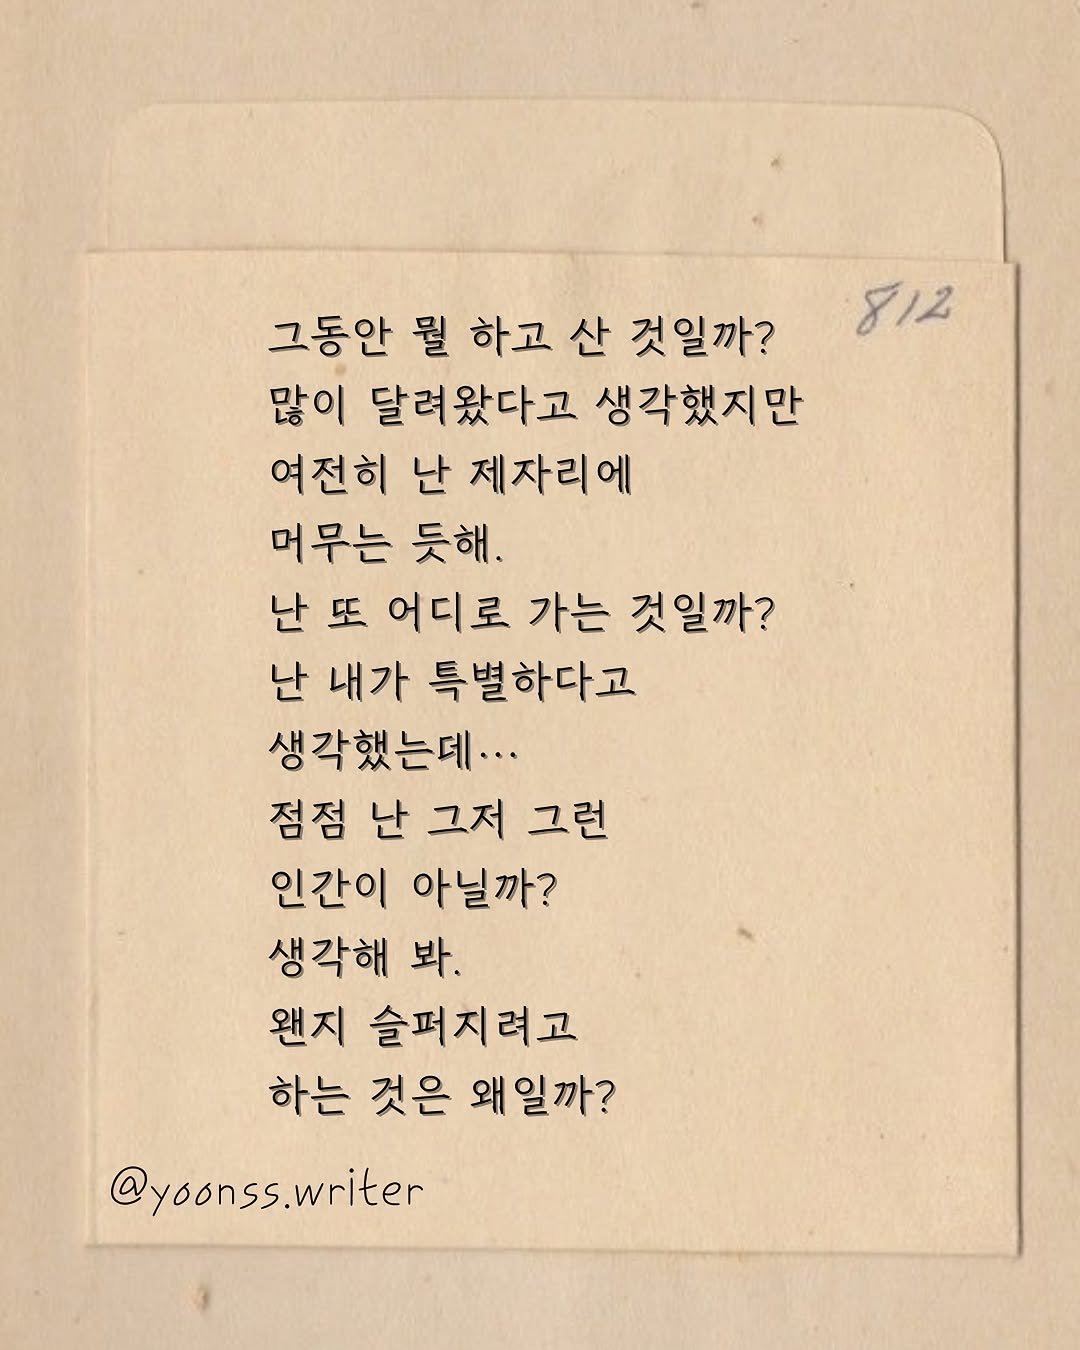 812
그동안 뭘 하고 산 것일까?
많이 달려왔다고 생각했지만
여전히 난 제자리에
머무는 듯해.
난 또 어디로 가는 것일까?
난 내가 특별하다고
생각했는데…
점점 난 그저 그런
인간이 아닐까?
생각해 봐.
왠지 슬퍼지려고
하는 것은 왜일까?
@yoonss.writer